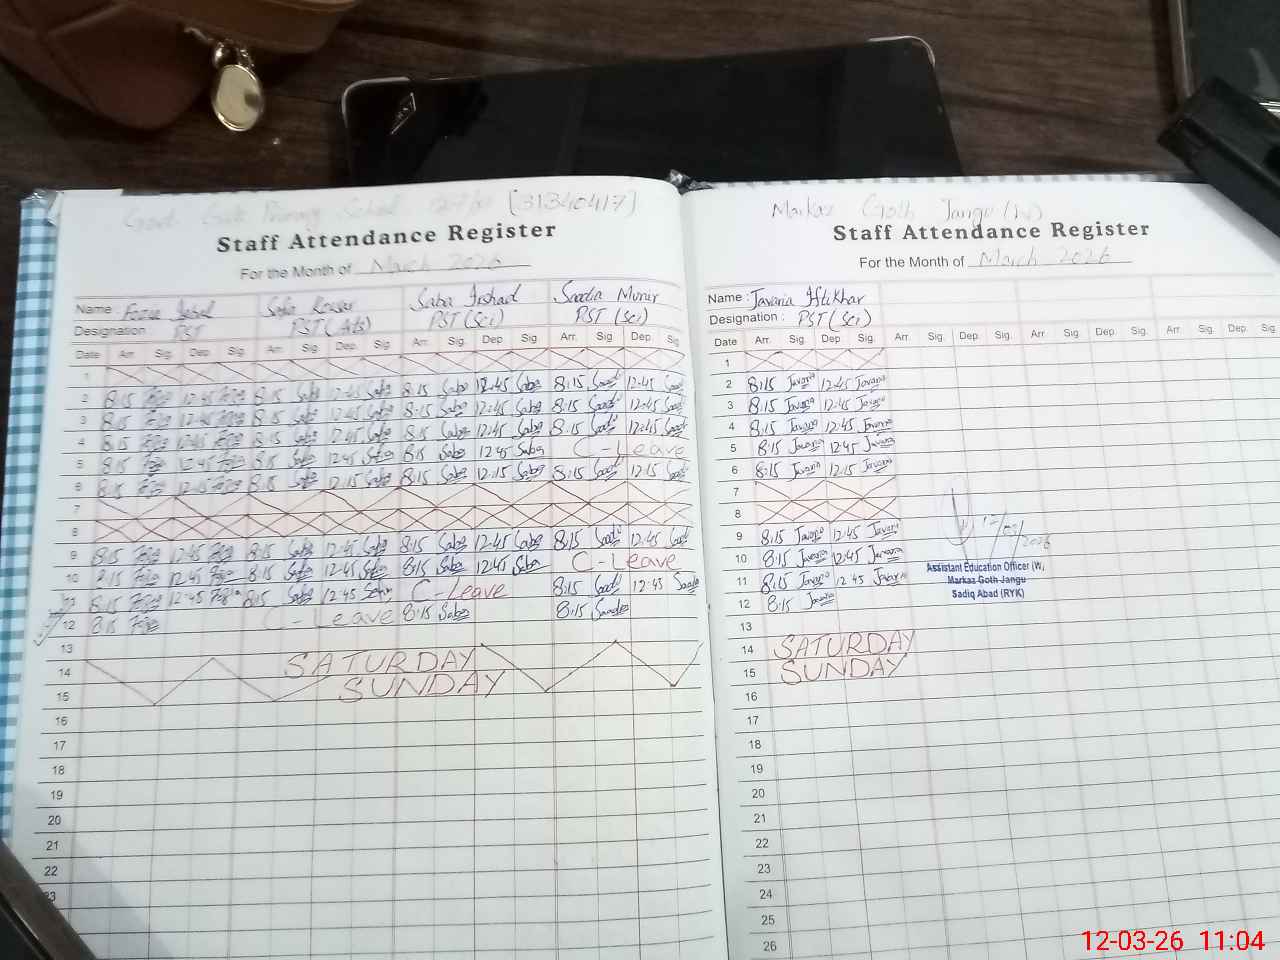 Govt Girls Primary School [31340417]
Staff Attendance Register
For the Month of March 2026
Name : Safia Kousar Saba Irshad Saadia Munir
Designation : PST PST (Arts) PST (Sci) PST (Sci)
Date Arr. Sig. Dep. Sig. Arr. Sig. Dep. Sig. Arr. Sig. Dep. Sig Arr. Sig. Dep. Sig
1
2 8:15 12:45 8:15 Safia 12:45 Safia 8:15 Saba 12:45 Saba 8:15 Saadi 12:45 Saadi
3 8:15 12:45 8:15 Safia 12:45 Safia 8:15 Saba 12:45 Saba 8:15 Saadi 12:45 Saadi
4 8:15 12:45 8:15 Safia 12:45 Safia 8:15 Saba 12:45 Saba 8:15 Saadi 12:45 Saadi
5 8:15 12:45 8:15 Safia 12:45 Safia 8:15 Saba 12:45 Saba C-Leave
6 8:15 12:15 8:15 Safia 12:15 Safia 8:15 Saba 12:15 Saba 8:15 Saadi 12:15 Saadi
7
8
9 8:15 12:45 8:15 Safia 12:45 Safia 8:15 Saba 12:45 Saba 8:15 Saadi 12:45 Saadi
10 8:15 12:45 8:15 Safia 12:45 Safia 8:15 Saba 12:45 Saba C-Leave
11 8:15 12:45 8:15 Safia 12:45 Safia C-Leave 8:15 Saadi 12:45 Saadi
12 8:15 C-Leave 8:15 Saba 8:15 Saadia
13
14 SATURDAY
15 SUNDAY
16
17
18
19
20
21
22
23
Markaz Goth Jangu (W)
Staff Attendance Register
For the Month of March 2026
Name : Javaria Iftikhar
Designation : PST (Sci)
Date Arr. Sig. Dep. Sig. Arr. Sig. Dep. Sig. Arr. Sig. Dep. Sig. Arr. Sig. Dep. Sig.
1
2 8:15 Javaria 12:45 Javaria
3 8:15 Javaria 12:45 Javaria
4 8:15 Javaria 12:45 Javaria
5 8:15 Javaria 12:45 Javaria
6 8:15 Javaria 12:15 Javaria
7
8
9 8:15 Javaria 12:45 Javaria
10 8:15 Javaria 12:45 Javaria
11 8:15 Javaria 12:45 Javaria
12 8:15 Javaria
13
14 SATURDAY
15 SUNDAY
16
17
18
19
20
21
22
23
24
25
26
12/03/2026
Assistant Education Officer (W,
Markaz Goth Jangu
Sadiq Abad (RYK)
12-03-26 11:04